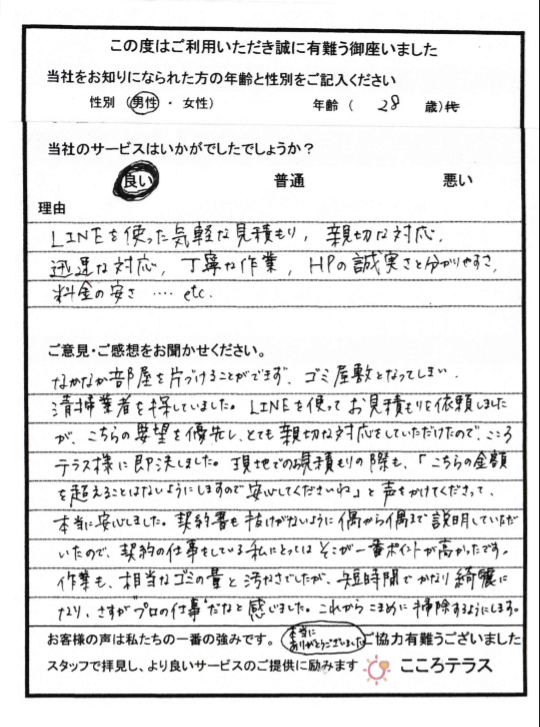 この度はご利用いただき誠に有難う御座いました
当社をお知りになられた方の年齢と性別をご記入ください
性別 (男性 ・ 女性) 年齢 ( 28 歳)代
当社のサービスはいかがでしたでしょうか?
良い 普通 悪い
理由
LINEを使った気軽な見積もり, 親切な対応,
迅速な対応, 丁寧な作業, HPの誠実さと分かりやすさ,
料金の安さ ‥‥ etc.
ご意見・ご感想をお聞かせください。
なかなか部屋を片づけることができず、ゴミ屋敷となってしまい、
清掃業者を探していました。LINEを使ってお見積もりを依頼しました
が、こちらの要望を優先し、とても親切な対応をしていただけたので、こころ
テラス様に即決しました。現地でのお見積もりの際も、「こちらの金額
を超えることはないようにしますので安心してくださいね」と声をかけてくださって、
本当に安心しました。契約書も抜けがないように隅から隅まで説明していただ
いたので、契約の仕事をしている私にとってはそこが一番ポイントが高かったです。
作業も、相当なゴミの量と汚なさでしたが、短時間でかなり綺麗に
なり、さすが"プロの仕事"だなと感じました。これからこまめに掃除するようにします。
お客様の声は私たちの一番の強みです。 本当にありがとうございました ご協力有難うございました
スタッフで拝見し、より良いサービスのご提供に励みます こころテラス